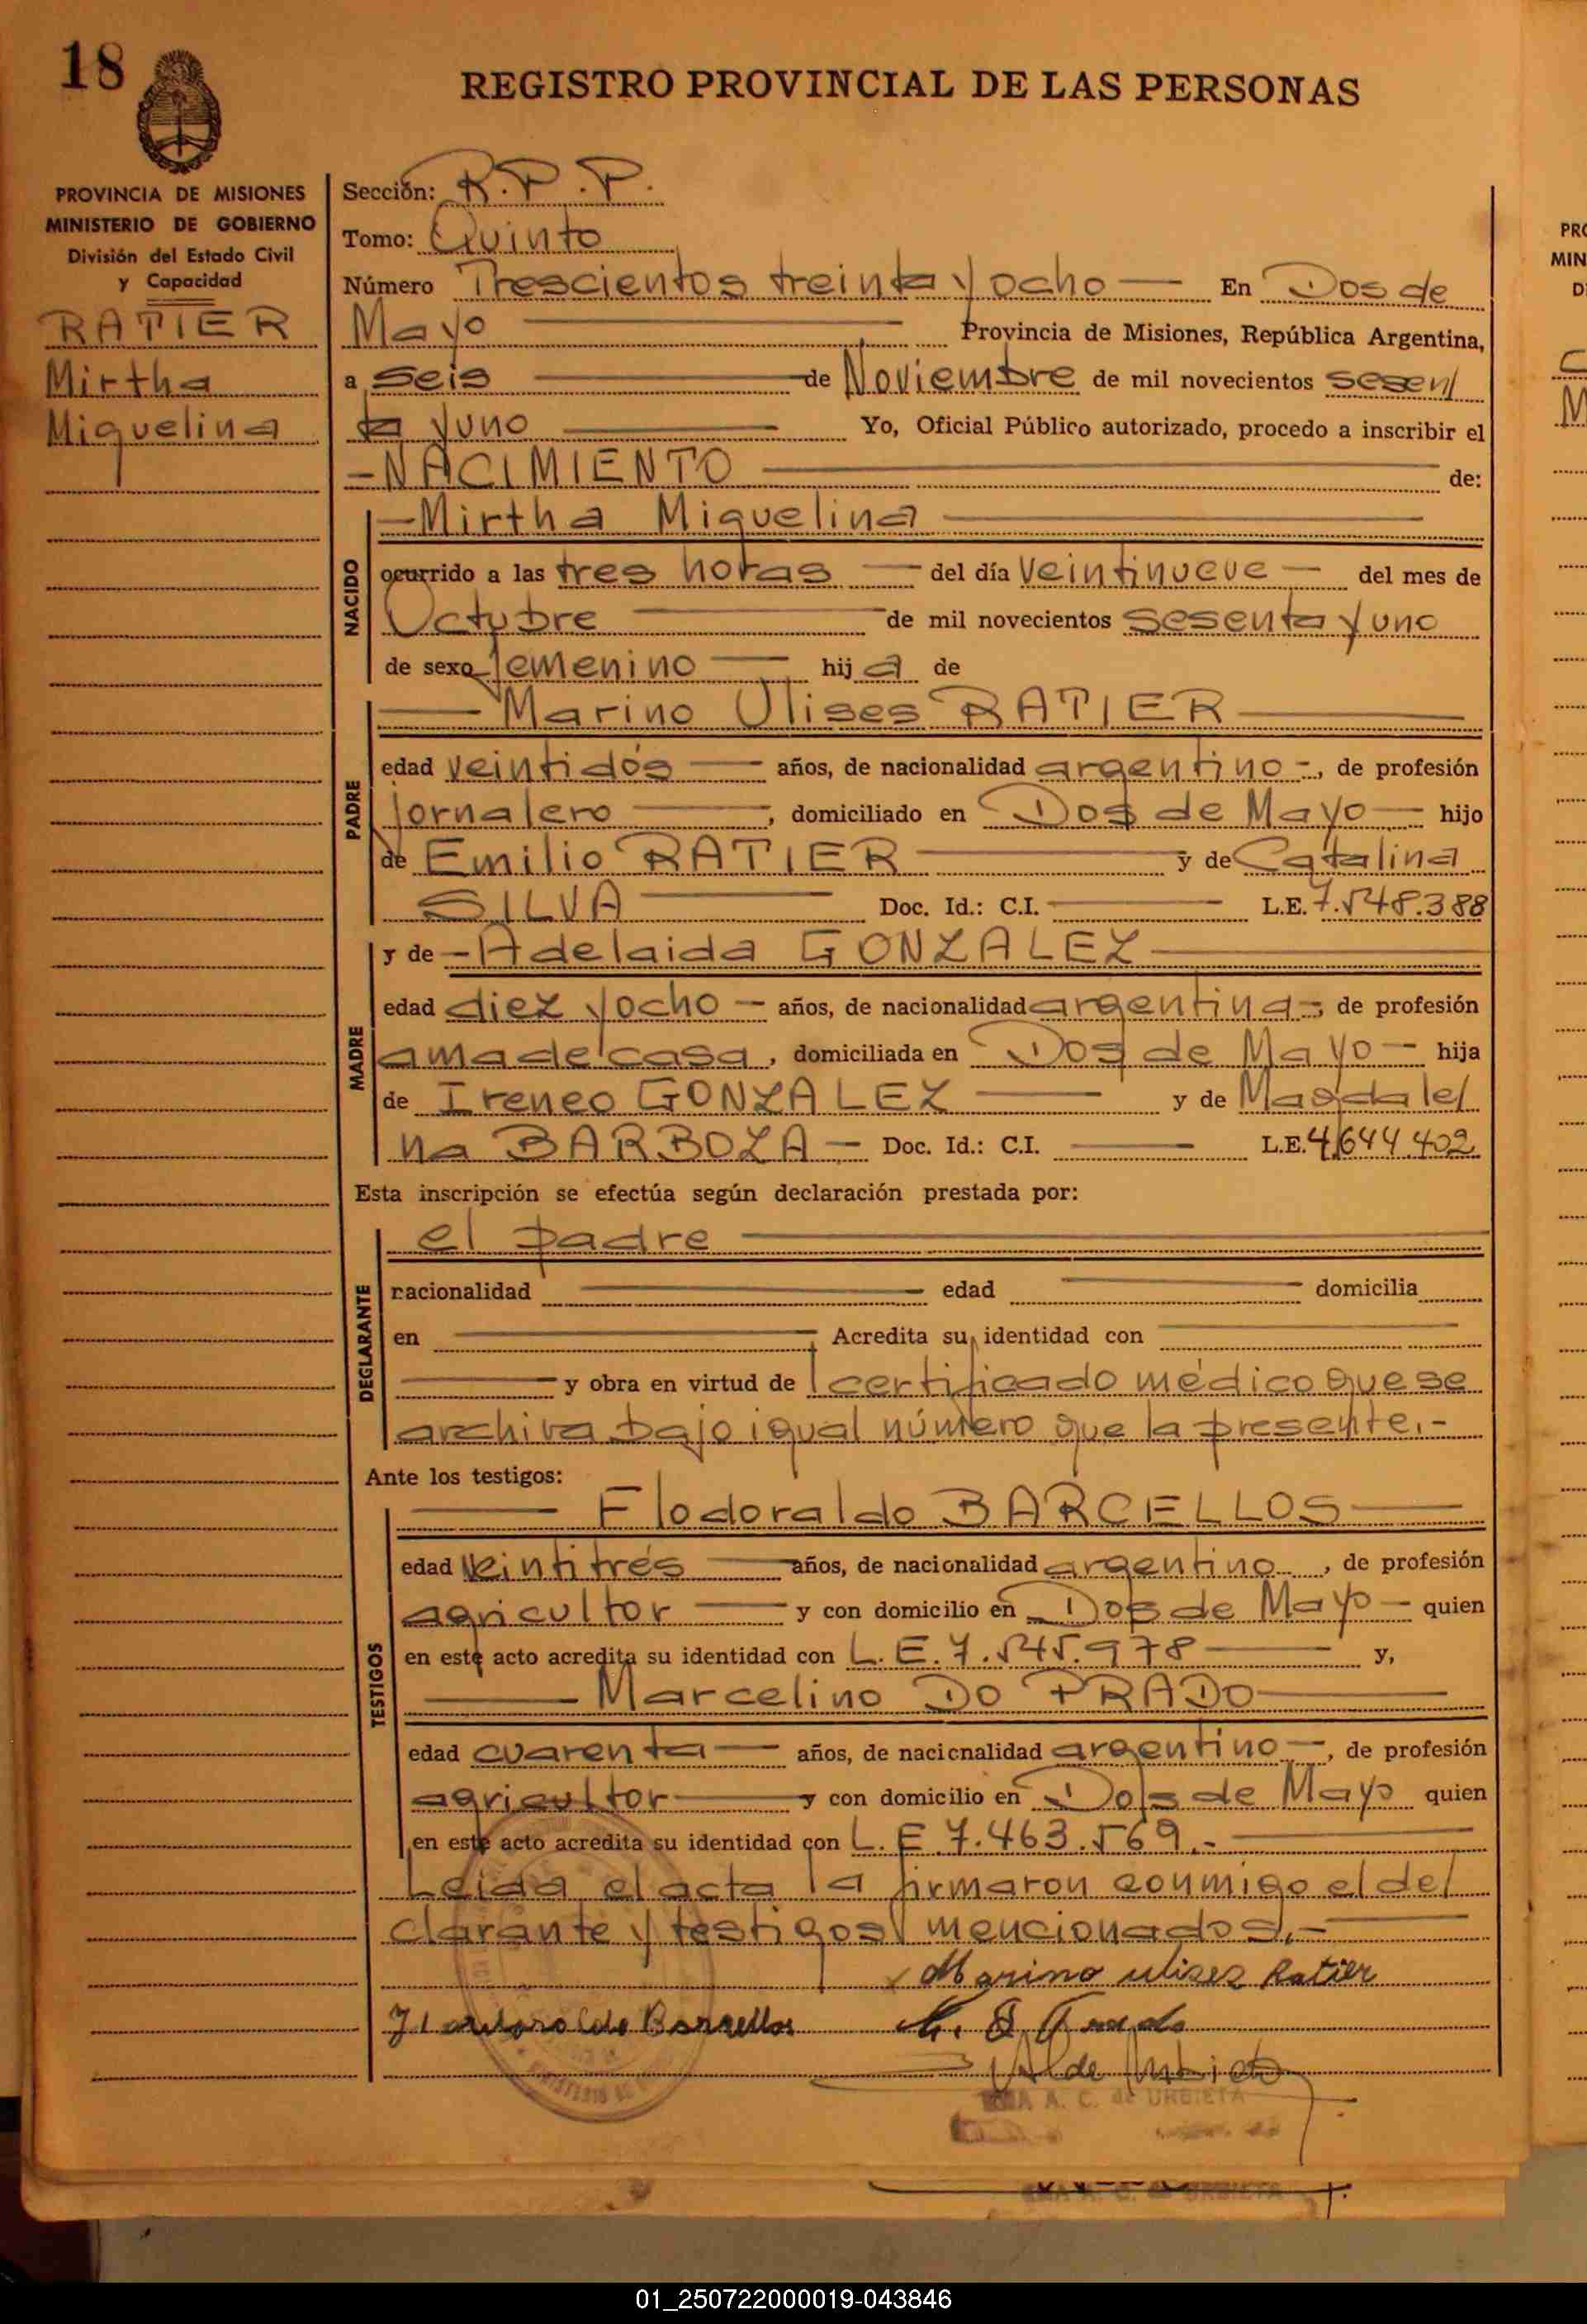 18
REGISTRO PROVINCIAL DE LAS PERSONAS
PROVINCIA DE MISIONES
MINISTERIO DE GOBIERNO
División del Estado Civil
y Capacidad
RATIER
Mirtha
Miguelina
Sección: R.P.P.
Tomo: Quinto
Número Trescientos treinta y ocho — En Dos de
Mayo — Provincia de Misiones, República Argentina,
a Seis — de Noviembre de mil novecientos sesen/
ta y uno — Yo, Oficial Público autorizado, procedo a inscribir el
- NACIMIENTO — de:
NACIDO
- Mirtha Miguelina —
ocurrido a las tres horas — del día veintinueve — del mes de
Octubre — de mil novecientos sesenta y uno
de sexo femenino — hija de
PADRE
— Marino Ulises RATIER —
edad veintidós — años, de nacionalidad argentino -, de profesión
jornalero —, domiciliado en Dos de Mayo — hijo
de Emilio RATIER — y de Catalina
SILVA — Doc. Id.: C.I. — L.E. 7.548.388
MADRE
y de - Adelaida GONZALEZ —
edad diez y ocho — años, de nacionalidad argentina -, de profesión
ama de casa, domiciliada en Dos de Mayo — hija
de Ireneo GONZALEZ — y de Magdale/
na BARBOZA — Doc. Id.: C.I. — L.E. 4.644.402
Esta inscripción se efectúa según declaración prestada por:
DECLARANTE
el padre —
nacionalidad — edad — domicilia
en — Acredita su identidad con —
— y obra en virtud de certificado médico que se
archiva bajo igual número que la presente.-
Ante los testigos:
TESTIGOS
— Flodoraldo BARCELLOS —
edad veintitrés — años, de nacionalidad argentino, de profesión
agricultor — y con domicilio en Dos de Mayo — quien
en este acto acredita su identidad con L.E. 7.545.978 — y,
— Marcelino DO PRADO —
edad cuarenta — años, de nacionalidad argentino —, de profesión
agricultor — y con domicilio en Dos de Mayo quien
en este acto acredita su identidad con L.E 7.463.569.- —
Leída el acta la firmaron conmigo el de/
clarante y testigos mencionados.- —
Marino ulises Ratier
Barcellos
A. C. de URBIETA
A. C. de URBIETA
PRO
MIN
D
01_250722000019-043846